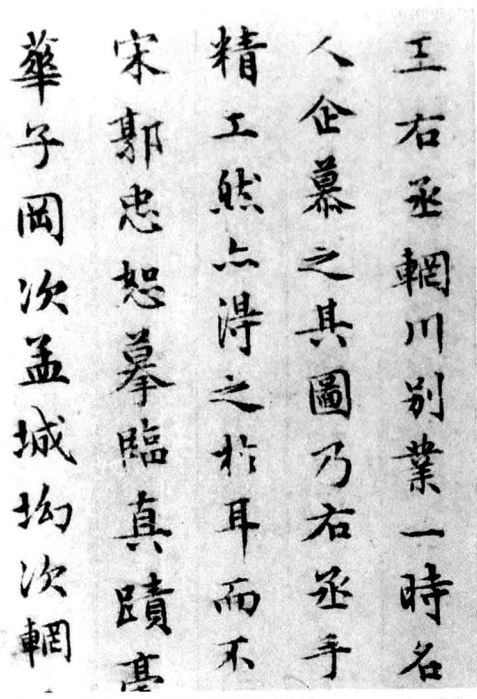 王右丞輞川別業一時名
人企慕之其圖乃右丞手
精工然亦得之於耳而不
宋郭忠恕摹臨真蹟毫
華子岡次孟城坳次輞